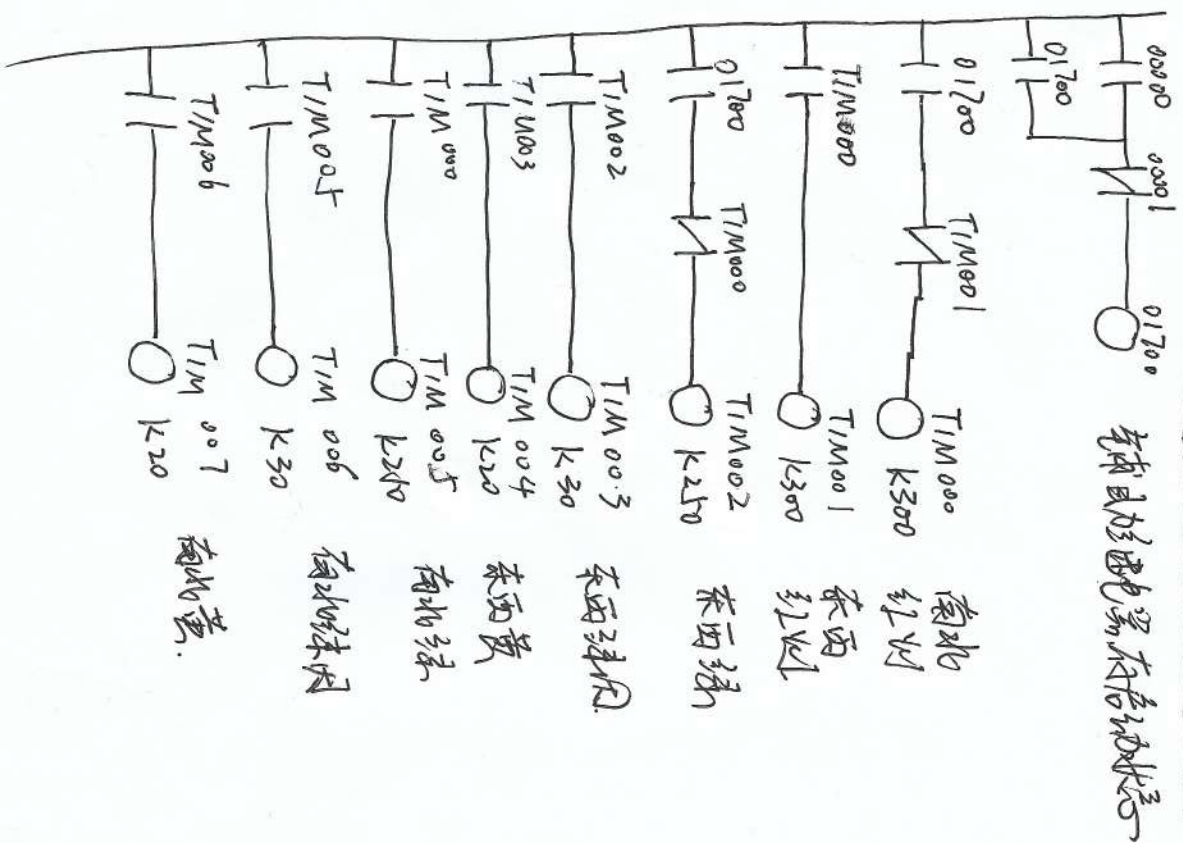 00000 00001 01700 辅助继电器,存启动状态
01700
01700 TIM001 TIM000 K300 南北红灯
TIM000 TIM001 K300 东西红灯
01700 TIM000 TIM002 K250 东西绿
TIM002 TIM003 K30 东西绿闪
TIM003 TIM004 K20 东西黄
TIM000 TIM005 K250 南北绿
TIM005 TIM006 K30 南北绿闪
TIM006 TIM007 K20 南北黄.